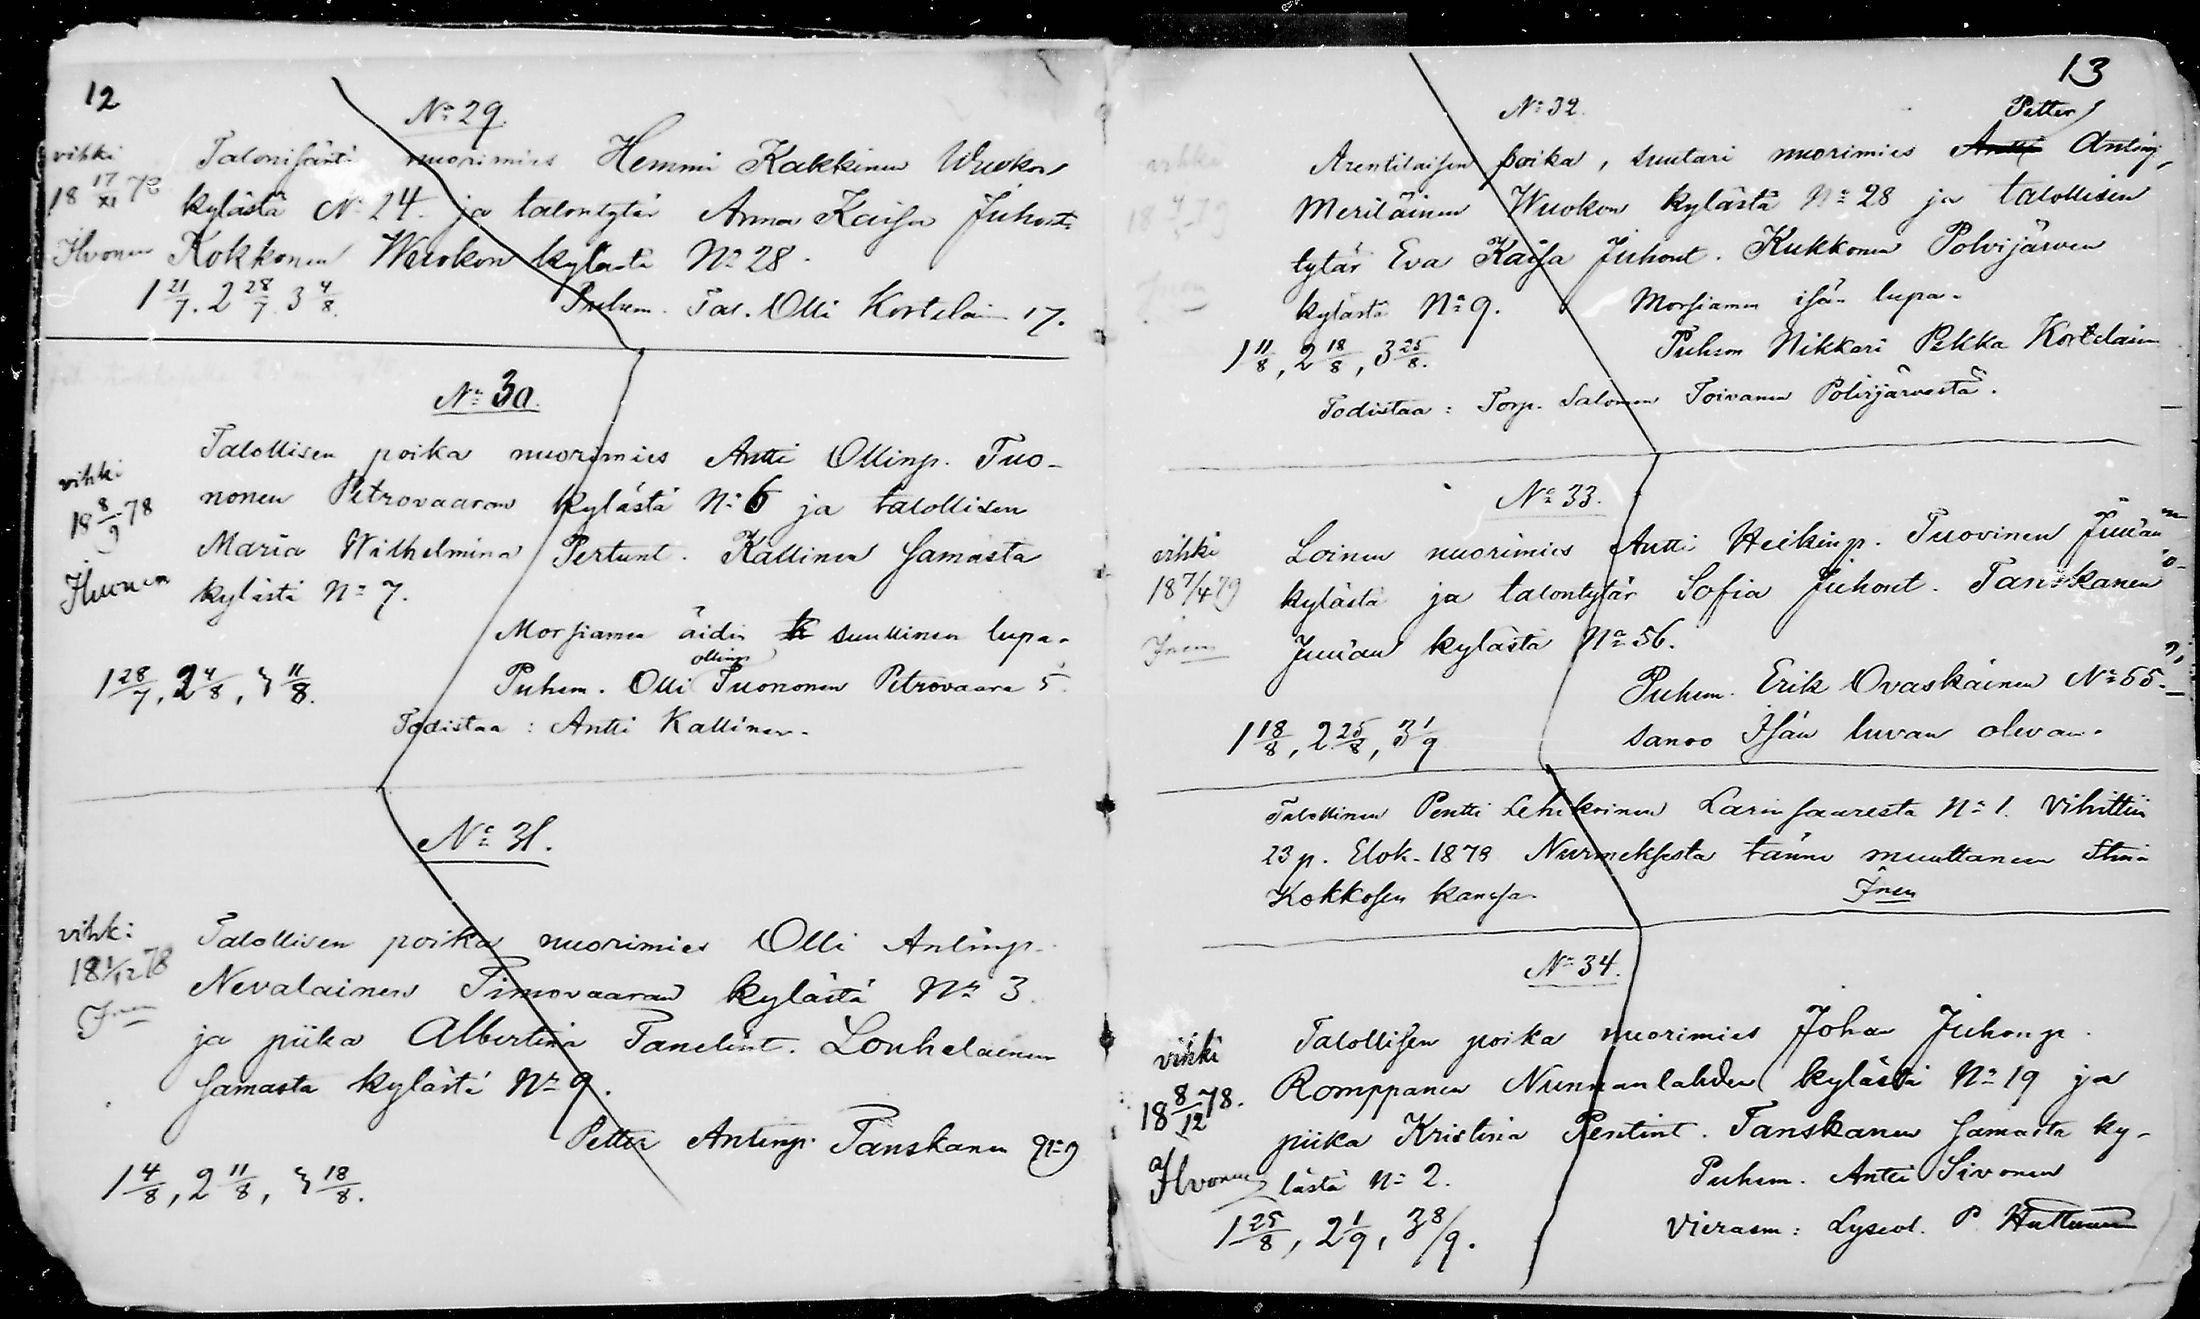 12
No 29.
vihki
18 17/XI 78
Ihvonen
Talonisäntä nuorimies Hemmi Kakkinen Wuokon
kylästä No 24 ja talontytär Anna Kaisa Juhont.
Kokkonen Wuokon kylästä No 28.
1 21/7. 2 28/7. 3 4/8.
Puhem. Tal. Olli Kortelain 17.
No 30.
vihki
18 8/9 78
Ihvonen
Talollisen poika nuorimies Antti Ollinp. Tuo-
nonen Petrovaaran kylästä No 6 ja talollisen
Maria Wilhelmina Pertunt. Kallinen samasta
kylästä No 7.
Morsiamen äidin suullinen lupa.
1 28/7, 2 4/8, 3 11/8.
Puhem. Olli Ollinp Tuononen Petrovaara 5.
Todistaa : Antti Kallinen.
No 31.
vihki
18 1/12 78
Inen
Talollisen poika nuorimies Olli Antinp.
Nevalainen Timovaaran kylästä No 3
ja piika Albertina Tanelint. Louhelainen
samasta kylästä No 9.
Petter Antinp. Tanskanen No 9
1 4/8, 2 11/8, 3 18/8.
13
No 32.
vihki
Petter
Arentilaisen poika, suutari nuorimies Antti Antinp.
Meriläinen Wuokon kylästä No 28 ja talollisen
tytär Eva Kaisa Juhont. Kukkonen Polvijärven
kylästä No 9.
Morsiamen isän lupa.
1 11/8, 2 18/8, 3 25/8.
Puhem Nikkari Pekka Kortelain
Todistaa : Torp. Salomon Toivanen Polvijärvestä.
No 33.
vihki
18 7/4 79
Inen
Loinen nuorimies Antti Heikinp. Tuovinen Juuan
kylästä ja talontytär Sofia Juhont. Tanskanen
Juuan kylästä No 56.
Puhem. Erik Ovaskainen No 55.
1 18/8, 2 25/8, 3 1/9
sanoo Isän luvan olevan.
Talollinen Pentti Lehikoinen Larinsaaresta No 1. vihittiin
23 p. Elok. 1878 Nurmeksesta tänne muuttaneen Stina
Kokkosen kanssa.
Inen
No 34.
vihki
18 8/12 78.
Ihvonen
Talollisen poika nuorimies Johan Juhonp.
Romppanen Nunnanlahden kylästä No 19 ja
piika Kristina Pentint. Tanskanen samasta ky-
lästä No 2.
Puhem. Antti Sivonen
1 25/8, 2 1/9, 3 8/9.
Vierasm : Lyseol. P. Huttunen